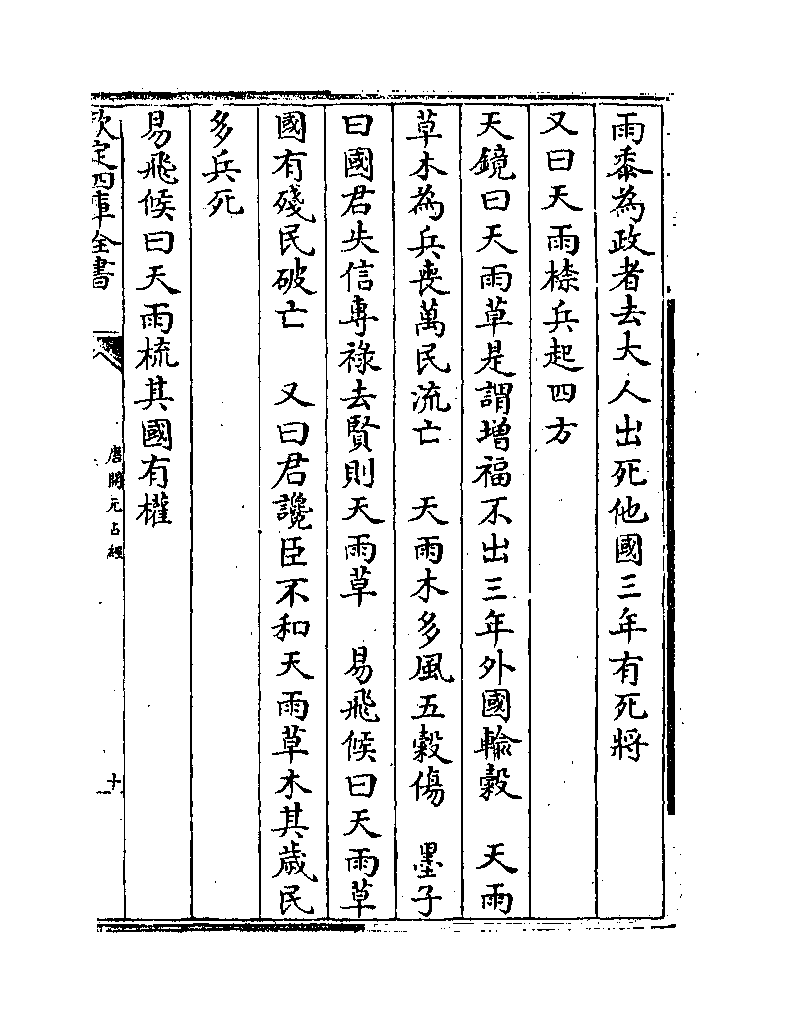 雨黍為政者去大人出死他國三年有死將
又曰天雨榛兵起四方
天鏡曰天雨草是謂增福不出三年外國輸穀　天雨
草木為兵喪萬民流亡　天雨木多風五穀傷　墨子
曰國君失信專祿去賢則天雨草　易飛候曰天雨草
國有殘民破亡　又曰君讒臣不和天雨草木其歲民
多兵死
易飛候曰天雨梳其國有權
欽定四庫全書
唐開元占經
十